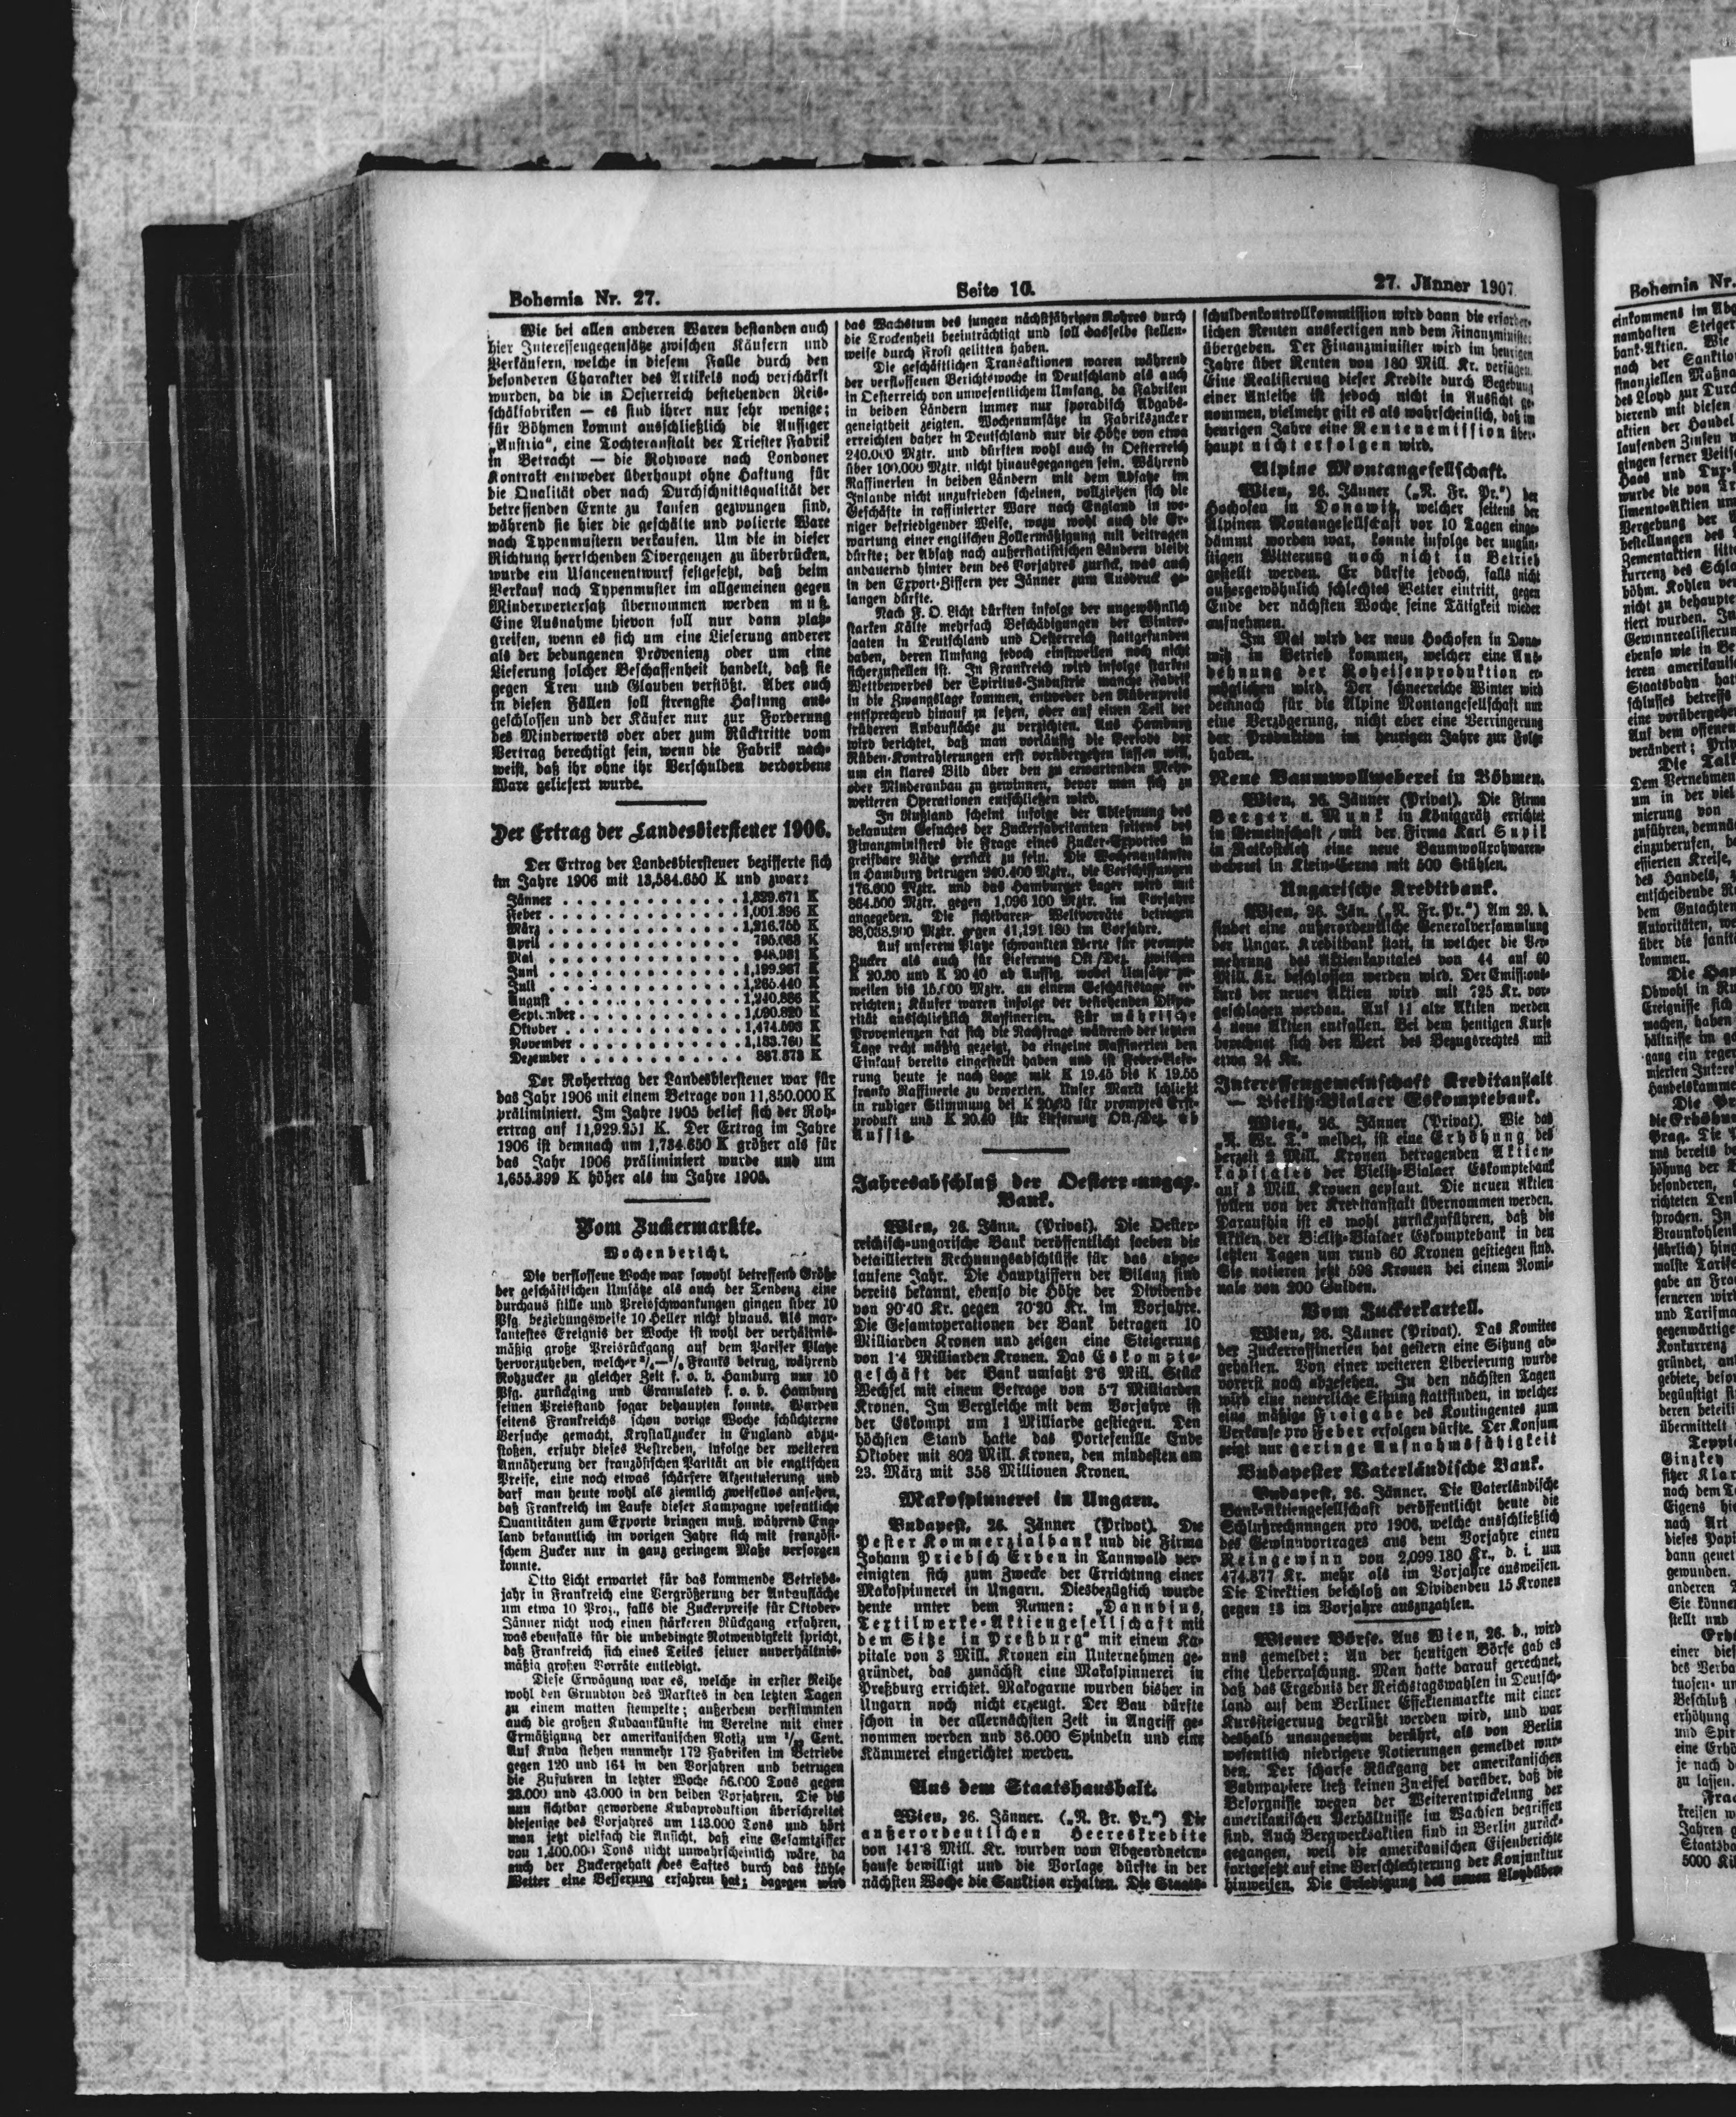 Bohemia Nr. 27.
Seite 10.
27. Jänner 1907.
Wie bei allen anderen Waren bestanden auch
hier Interessengegensätze zwischen Käufern und
Verkäufern, welche in diesem Falle durch den
besonderen Charakter des Artikels noch verschärft
wurden, da die in Oesterreich bestehenden Reis-
schälfabriken — es sind ihrer nur sehr wenige;
für Böhmen kommt ausschließlich die Aussiger
„Austria“, eine Tochteranstalt der Triester Fabrik
in Betracht — die Rohware nach Londoner
Kontrakt entweder überhaupt ohne Haftung für
die Qualität oder nach Durchschnittsqualität der
betreffenden Ernte zu kaufen gezwungen sind,
während sie hier die geschälte und polierte Ware
nach Typenmustern verkaufen. Um die in dieser
Richtung herrschenden Divergenzen zu überbrücken,
wurde ein Usancenentwurf festgesetzt, daß beim
Verkauf nach Typenmuster im allgemeinen gegen
Minderwertersatz übernommen werden muß.
Eine Ausnahme hievon soll nur dann platz-
greifen, wenn es sich um eine Lieferung anderer
als der bedungenen Provenienz oder um eine
Lieferung solcher Beschaffenheit handelt, daß sie
gegen Treu und Glauben verstößt. Aber auch
in diesen Fällen soll strengste Haftung aus-
geschlossen und der Käufer nur zur Forderung
des Minderwerts oder aber zum Rücktritte vom
Vertrag berechtigt sein, wenn die Fabrik nach-
weist, daß ihr ohne ihr Verschulden verdorbene
Ware geliefert wurde.
Der Ertrag der Landesbiersteuer 1906.
Der Ertrag der Landesbiersteuer bezifferte sich
im Jahre 1906 mit 13,584.650 K und zwar:
Jänner . . . . . . . . . . . . . 1,329.671 K
Feber . . . . . . . . . . . . . 1,001.396 K
März . . . . . . . . . . . . . 1,916.755 K
April . . . . . . . . . . . . . 795.063 K
Mai . . . . . . . . . . . . . 948.981 K
Juni . . . . . . . . . . . . . 1,199.967 K
Juli . . . . . . . . . . . . . 1,265.440 K
August . . . . . . . . . . . . . 1,240.886 K
September . . . . . . . . . . . . 1,090.820 K
Oktober . . . . . . . . . . . . . 1,474.593 K
November . . . . . . . . . . . . 1,133.760 K
Dezember . . . . . . . . . . . . 887.373 K
Der Rohertrag der Landesbiersteuer war für
das Jahr 1906 mit einem Betrage von 11,850.000 K
präliminiert. Im Jahre 1905 belief sich der Roh-
ertrag auf 11,929.251 K. Der Ertrag im Jahre
1906 ist demnach um 1,734.650 K größer als für
das Jahr 1906 präliminiert wurde und um
1,655.399 K höher als im Jahre 1905.
Vom Zuckermarkte.
Wochenbericht.
Die verflossene Woche war sowohl betreffend Größe
der geschäftlichen Umsätze als auch der Tendenz eine
durchaus stille und Preisschwankungen gingen über 10
Pfg. beziehungsweise 10 Heller nicht hinaus. Als mar-
kantestes Ereignis der Woche ist wohl der verhältnis-
mäßig große Preisrückgang auf dem Pariser Platze
hervorzuheben, welcher Franks betrug, während
Rohzucker zu gleicher Zeit f. o. b. Hamburg nur 10
Pfg. zurückging und Granulated f. o. b. Hamburg
seinen Preisstand sogar behaupten konnte. Wurden
seitens Frankreichs schon vorige Woche schüchterne
Versuche gemacht, Krystallzucker in England abzu-
stoßen, erfuhr dieses Bestreben, infolge der weiteren
Annäherung der französischen Parität an die englischen
Preise, eine noch etwas schärfere Akzentuierung und
darf man heute wohl als ziemlich zweifellos ansehen,
daß Frankreich im Laufe dieser Kampagne wesentliche
Quantitäten zum Exporte bringen muß, während Eng-
land bekanntlich im vorigen Jahre sich mit französi-
schem Zucker nur in ganz geringem Maße versorgen
konnte.
Otto Licht erwartet für das kommende Betriebs-
jahr in Frankreich eine Vergrößerung der Anbaufläche
um etwa 10 Proz., falls die Zuckerpreise für Oktober-
Jänner nicht noch einen stärkeren Rückgang erfahren,
was ebenfalls für die unbedingte Notwendigkeit spricht,
daß Frankreich sich eines Teiles seiner unverhältnis-
mäßig großen Vorräte entledigt.
Diese Erwägung war es, welche in erster Reihe
wohl den Grundton des Marktes in den letzten Tagen
zu einem matten stempelte; außerdem verstimmten
auch die großen Kubaankünfte im Vereine mit einer
Ermäßigung der amerikanischen Notiz um Cent.
Auf Kuba stehen nunmehr 172 Fabriken im Betriebe
gegen 120 und 164 in den Vorjahren und betrugen
die Zufuhren in letzter Woche 56.000 Tons gegen
23.000 und 43.000 in den beiden Vorjahren. Die bis
nun sichtbar gewordene Kubaproduktion überschreitet
diejenige des Vorjahres um 143.000 Tons und hört
man jetzt vielfach die Ansicht, daß eine Gesamtziffer
von 1,400.000 Tons nicht unwahrscheinlich wäre, da
auch der Zuckergehalt des Saftes durch das kühle
Wetter eine Besserung erfahren hat; dagegen wird
das Wachstum des jungen nächstjährigen Rohres durch
die Trockenheit beeinträchtigt und soll dasselbe stellen-
weise durch Frost gelitten haben.
Die geschäftlichen Transaktionen waren während
der verflossenen Berichtswoche in Deutschland als auch
in Oesterreich von unwesentlichem Umfang, da Fabriken
in beiden Ländern immer nur sporadisch Abgabs-
geneigtheit zeigten. Wochenumsätze in Fabrikszucker
erreichten daher in Deutschland nur die Höhe von etwa
240.000 Mztr. und dürften wohl auch in Oesterreich
über 100.000 Mztr. nicht hinausgegangen sein. Während
Raffinerien in beiden Ländern mit dem Absatze im
Inlande nicht unzufrieden scheinen, vollziehen sich die
Geschäfte in raffinierter Ware nach England in we-
niger befriedigender Weise, wozu wohl auch die Er-
wartung einer englischen Zollermäßigung mit beitragen
dürfte; der Absatz nach außerstatistischen Ländern bleibt
andauernd hinter dem des Vorjahres zurück, was auch
in den Export-Ziffern per Jänner zum Ausdruck ge-
langen dürfte.
Nach F. O. Licht dürften infolge der ungewöhnlich
starken Kälte mehrfach Beschädigungen der Winter-
saaten in Deutschland und Oesterreich stattgefunden
haben, deren Umfang jedoch einstweilen noch nicht
sicherzustellen ist. In Frankreich wird infolge starken
Wettbewerbes der Spiritus-Industrie manche Fabrik
in die Zwangslage kommen, entweder den Rübenpreis
entsprechend hinauf zu setzen, oder auf einen Teil der
früheren Anbaufläche zu verzichten. Aus Hamburg
wird berichtet, daß man vorläufig die Periode der
Rüben-Kontrahierungen erst vorübergehen lassen will,
um ein klares Bild über den zu erwartenden Mehr-
oder Minderanbau zu gewinnen, bevor man sich zu
weiteren Operationen entschließen wird.
In Rußland scheint infolge der Ablehnung des
bekannten Gesuches der Zuckerfabrikanten seitens des
Finanzministers die Frage eines Zucker-Exportes in
greifbare Nähe gerückt zu sein. Die Wochenankünfte
in Hamburg betrugen 240.400 Mztr., die Verschiffungen
176.600 Mztr. und das Hamburger Lager wird mit
864.500 Mztr. gegen 1,096 100 Mztr. im Vorjahre
angegeben. Die sichtbaren Weltvorräte betragen
38,038.900 Mztr. gegen 41,191 180 im Vorjahre.
Auf unserem Platze schwankten Werte für prompte
Zucker als auch für Lieferung Okt./Dez. zwischen
K 20.30 und K 20 40 ab Aussig, wobei Umsätze zu-
weilen bis 15.000 Mztr. an einem Geschäftstage er-
reichten; Käufer waren infolge der bestehenden Dispa-
rität ausschließlich Raffinerien. Für mährische
Provenienzen hat sich die Nachfrage während der letzten
Tage recht mäßig gezeigt, da einzelne Raffinerien den
Einkauf bereits eingestellt haben und ist Feber-Liefe-
rung heute je nach Lage mit K 19.45 bis K 19.55
franko Raffinerie zu bewerten. Unser Markt schließt
in ruhiger Stimmung bei K 20.35 für promptes Erst-
produkt und K 20.40 für Lieferung Okt./Dez. ab
Aussig.
Jahresabschluß der Oesterr.-ungar.
Bank.
Wien, 26. Jänn. (Privat). Die Oester-
reichisch-ungarische Bank veröffentlicht soeben die
detaillierten Rechnungsabschlüsse für das abge-
laufene Jahr. Die Hauptziffern der Bilanz sind
bereits bekannt, ebenso die Höhe der Dividende
von 90·40 Kr. gegen 70·20 Kr. im Vorjahre.
Die Gesamtoperationen der Bank betragen 10
Milliarden Kronen und zeigen eine Steigerung
von 1·4 Milliarden Kronen. Das Eskompte-
geschäft der Bank umfaßt 2·6 Mill. Stück
Wechsel mit einem Betrage von 5·7 Milliarden
Kronen. Im Vergleiche mit dem Vorjahre ist
der Eskompt um 1 Milliarde gestiegen. Den
höchsten Stand hatte das Portefeuille Ende
Oktober mit 802 Mill. Kronen, den mindesten am
23. März mit 358 Millionen Kronen.
Makospinnerei in Ungarn.
Budapest, 26. Jänner (Privat). Die
Pester Kommerzialbank und die Firma
Johann Priebsch Erben in Tannwald ver-
einigten sich zum Zwecke der Errichtung einer
Makospinnerei in Ungarn. Diesbezüglich wurde
heute unter dem Namen: „Dannbius,
Textilwerke-Aktiengesellschaft mit
dem Sitze in Preßburg“ mit einem Ka-
pitale von 3 Mill. Kronen ein Unternehmen ge-
gründet, das zunächst eine Makospinnerei in
Preßburg errichtet. Makogarne wurden bisher in
Ungarn noch nicht erzeugt. Der Bau dürfte
schon in der allernächsten Zeit in Angriff ge-
nommen werden und 36.000 Spindeln und eine
Kämmerei eingerichtet werden.
Aus dem Staatshaushalt.
Wien, 26. Jänner. („N. Fr. Pr.“) Die
außerordentlichen Heereskredite
von 141·8 Mill. Kr. wurden vom Abgeordneten-
hause bewilligt und die Vorlage dürfte in der
nächsten Woche die Sanktion erhalten. Die Staats-
schuldenkontrollkommission wird dann die erforder-
lichen Renten ausfertigen und dem Finanzminister
übergeben. Der Finanzminister wird im heurigen
Jahre über Renten von 180 Mill. Kr. verfügen.
Eine Realisierung dieser Kredite durch Begebung
einer Anleihe ist jedoch nicht in Aussicht ge-
nommen, vielmehr gilt es als wahrscheinlich, daß im
heurigen Jahre eine Rentenemission über-
haupt nicht erfolgen wird.
Alpine Montangesellschaft.
Wien, 26. Jänner („N. Fr. Pr.“) der
Hochofen in Donawitz, welcher seitens der
Alpinen Montangesellschaft vor 10 Tagen einge-
dämmt worden war, konnte infolge der ungün-
stigen Witterung noch nicht in Betrieb
gestellt werden. Er dürfte jedoch, falls nicht
außergewöhnlich schlechtes Wetter eintritt, gegen
Ende der nächsten Woche seine Tätigkeit wieder
aufnehmen.
Im Mai wird der neue Hochofen in Dona-
witz in Betrieb kommen, welcher eine Aus-
dehnung der Roheisenproduktion er-
möglichen wird. Der schneereiche Winter wird
demnach für die Alpine Montangesellschaft nur
eine Verzögerung, nicht aber eine Verringerung
der Produktion im heurigen Jahre zur Folge
haben.
Neue Baumwollweberei in Böhmen.
Wien, 26. Jänner (Privat). Die Firma
Berger u. Munk in Königgrätz errichtet
in Gemeinschaft mit der Firma Karl Supik
in Rotkosteletz eine neue Baumwollrohwaren-
weberei in Klein-Cerma mit 500 Stühlen.
Ungarische Kreditbank.
Wien, 26. Jän. („N. Fr. Pr.“) Am 29. d.
findet eine außerordentliche Generalversammlung
der Ungar. Kreditbank statt, in welcher die Ver-
mehrung des Aktienkapitales von 44 auf 60
Mill. Kr. beschlossen werden wird. Der Emissions-
kurs der neuen Aktien wird mit 725 Kr. vor-
geschlagen werden. Auf 11 alte Aktien werden
4 neue Aktien entfallen. Bei dem heutigen Kurse
berechnet sich der Wert des Bezugsrechtes mit
etwa 24 Kr.
Interessengemeinschaft Kreditanstalt
— Bielitz-Bialaer Eskomptebank.
Wien, 26. Jänner (Privat). Wie das
„N. Wr. T.“ meldet, ist eine Erhöhung des
derzeit 2 Mill. Kronen betragenden Aktien-
kapitales der Bielitz-Bialaer Eskomptebank
auf 3 Mill. Kronen geplant. Die neuen Aktien
sollen von der Kreditanstalt übernommen werden.
Daraufhin ist es wohl zurückzuführen, daß die
Aktien der Bielitz-Bialaer Eskomptebank in den
letzten Tagen um rund 60 Kronen gestiegen sind.
Sie notieren jetzt 598 Kronen bei einem Nomi-
nale von 200 Gulden.
Vom Zuckerkartell.
Wien, 26. Jänner (Privat). Das Komitee
der Zuckerraffinerien hat gestern eine Sitzung ab-
gehalten. Von einer weiteren Liberierung wurde
vorerst noch abgesehen. In den nächsten Tagen
wird eine neuerliche Sitzung stattfinden, in welcher
eine mäßige Freigabe des Kontingentes zum
Verkaufe pro Feber erfolgen dürfte. Der Konsum
zeigt nur geringe Aufnahmsfähigkeit
Budapester Vaterländische Bank.
Budapest, 26. Jänner. Die Vaterländische
Bank-Aktiengesellschaft veröffentlicht heute die
Schlußrechnungen pro 1906, welche ausschließlich
des Gewinnvortrages aus dem Vorjahre einen
Reingewinn von 2,099.180 Kr., d. i. um
474.877 Kr. mehr als im Vorjahre ausweisen.
Die Direktion beschloß an Dividenden 15 Kronen
gegen 13 im Vorjahre auszuzahlen.
Wiener Börse. Aus Wien, 26. d., wird
uns gemeldet: An der heutigen Börse gab es
eine Ueberraschung. Man hatte darauf gerechnet,
daß das Ergebnis der Reichstagswahlen in Deutsch-
land auf dem Berliner Effektenmarkte mit einer
Kurssteigerung begrüßt werden wird, und war
deshalb unangenehm berührt, als von Berlin
wesentlich niedrigere Notierungen gemeldet wur-
den. Der scharfe Rückgang der amerikanischen
Bahnpapiere ließ keinen Zweifel darüber, daß die
Besorgnisse wegen der Weiterentwickelung der
amerikanischen Verhältnisse im Wachsen begriffen
sind. Auch Bergwerksaktien sind in Berlin zurück-
gegangen, weil die amerikanischen Eisenberichte
fortgesetzt auf eine Verschlechterung der Konjunktur
hinweisen. Die Erledigung des neuen Lloydüber-
Bohemia Nr.
einkommens im Abg
namhaften Steiger
bank-Aktien. Wie
nach der Sanktio
finanziellen Maßna
des Lloyd zur Durc
dierend mit diesen
aktien der Handel
laufenden Zinsen
gingen ferner Veits
Haas und Tux-
wurde die von Tr
limento-Aktien um
Vergebung der
bestellungen des
Zementaktien litte
kurrenz des Schlo
böhm. Kohlen ver
nicht zu behaupte
tiert wurden. In
Gewinnrealisierun
ebenso wie in Be
teren amerikanis
Staatsbahn hat
schlusses betreffs
eine vorübergehen
Auf dem offenen
verändert; Priv
Die Tal
Dem Vernehmen
um in der viel
mierung von
zuführen, demnä
einzuberufen, be
effierten Kreise,
des Handels, z
entscheidende R
dem Gutachten
Autoritäten, we
über die sanit
kommen.
Die Han
Obwohl in Ru
Ereignisse sich
machen, haben
hältnisse im ga
gang ein reger
mierten Intere
Handelskamme
Die Pr
die Erhöhun
Prag. Die
uns bereits be
höhung der
besonderen,
richteten Den
sprochen. In
Braunkohlen
jährlich) hing
malste Tarife
gabe an Fra
ferneren wird
und Tarifma
gegenwärtige
Konkurrenz
gründet, an
gebiete, beson
begünstigt si
deren beteili
übermittelt
Teppi
Ginzkey
sitzer Klar
nach dem T
Eigens hie
nach Art
dieses Papi
dann genet
gewunden.
anderen
Sie könne
stellt und
Erh
einer die
des Verba
tuosen- un
Beschluß
erhöhung
und Spir
eine Erhö
je nach d
zu lassen.
Frac
kreisen w
Jahren g
Staatsba
5000 Kil